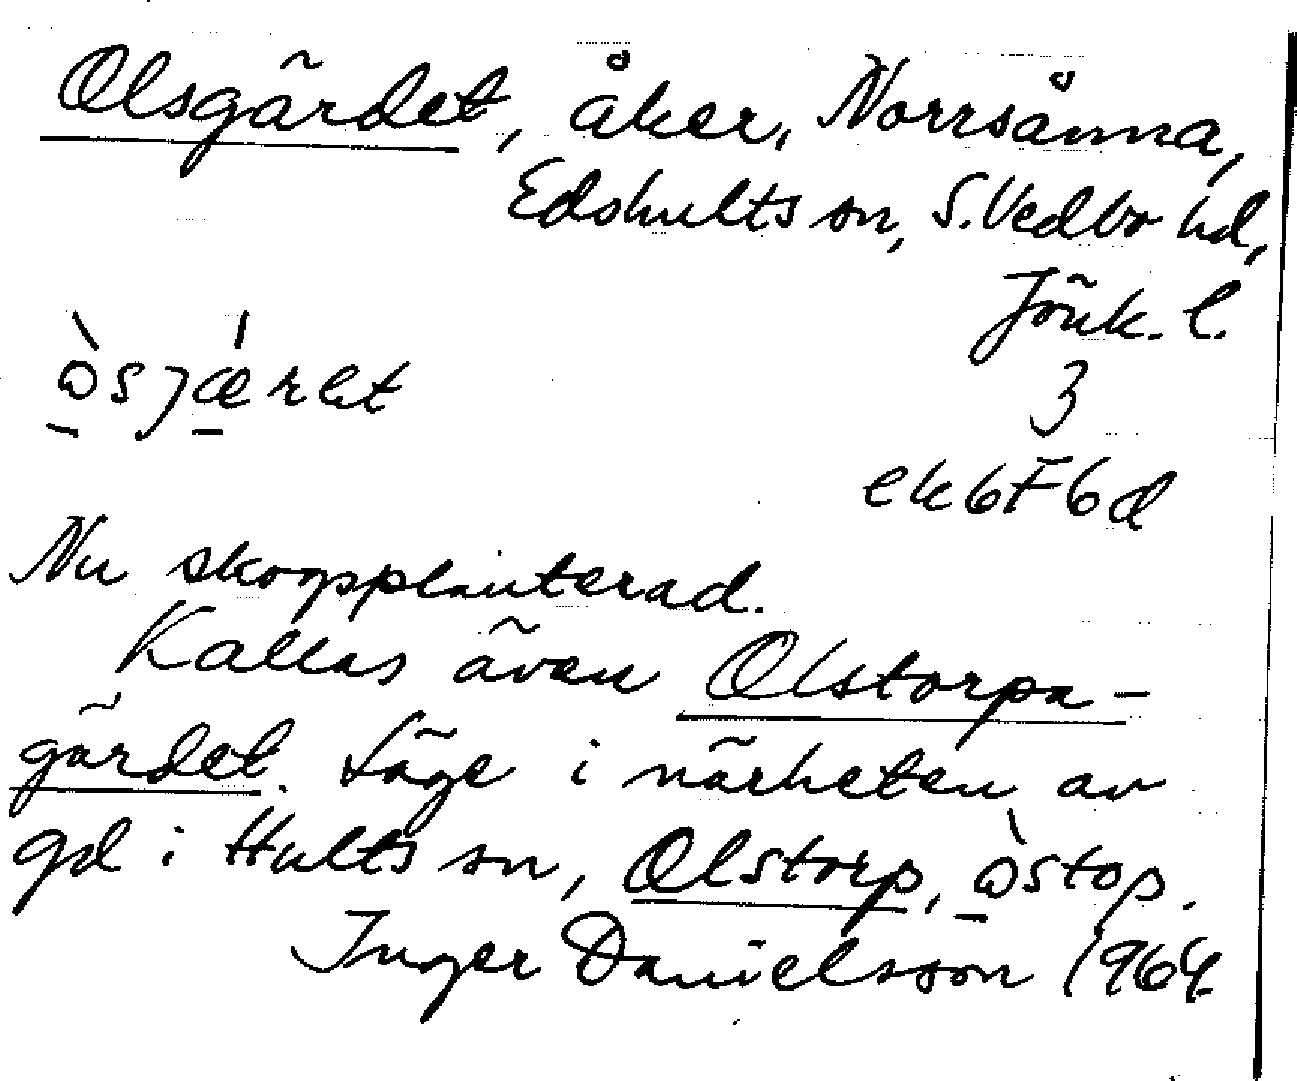 Olsgärdet, åker, Norrsånna,
Edshults sn, S. Vedbo hd,
Jönk. l.
òsjǽret
3
ek 6F6d
Nu skogsplanterad.
Kallas även Olstorpa-
gärdet. Läge i närheten av
gd i Hults sn, Olstorp, òstop.
Inger Danielsson 1964